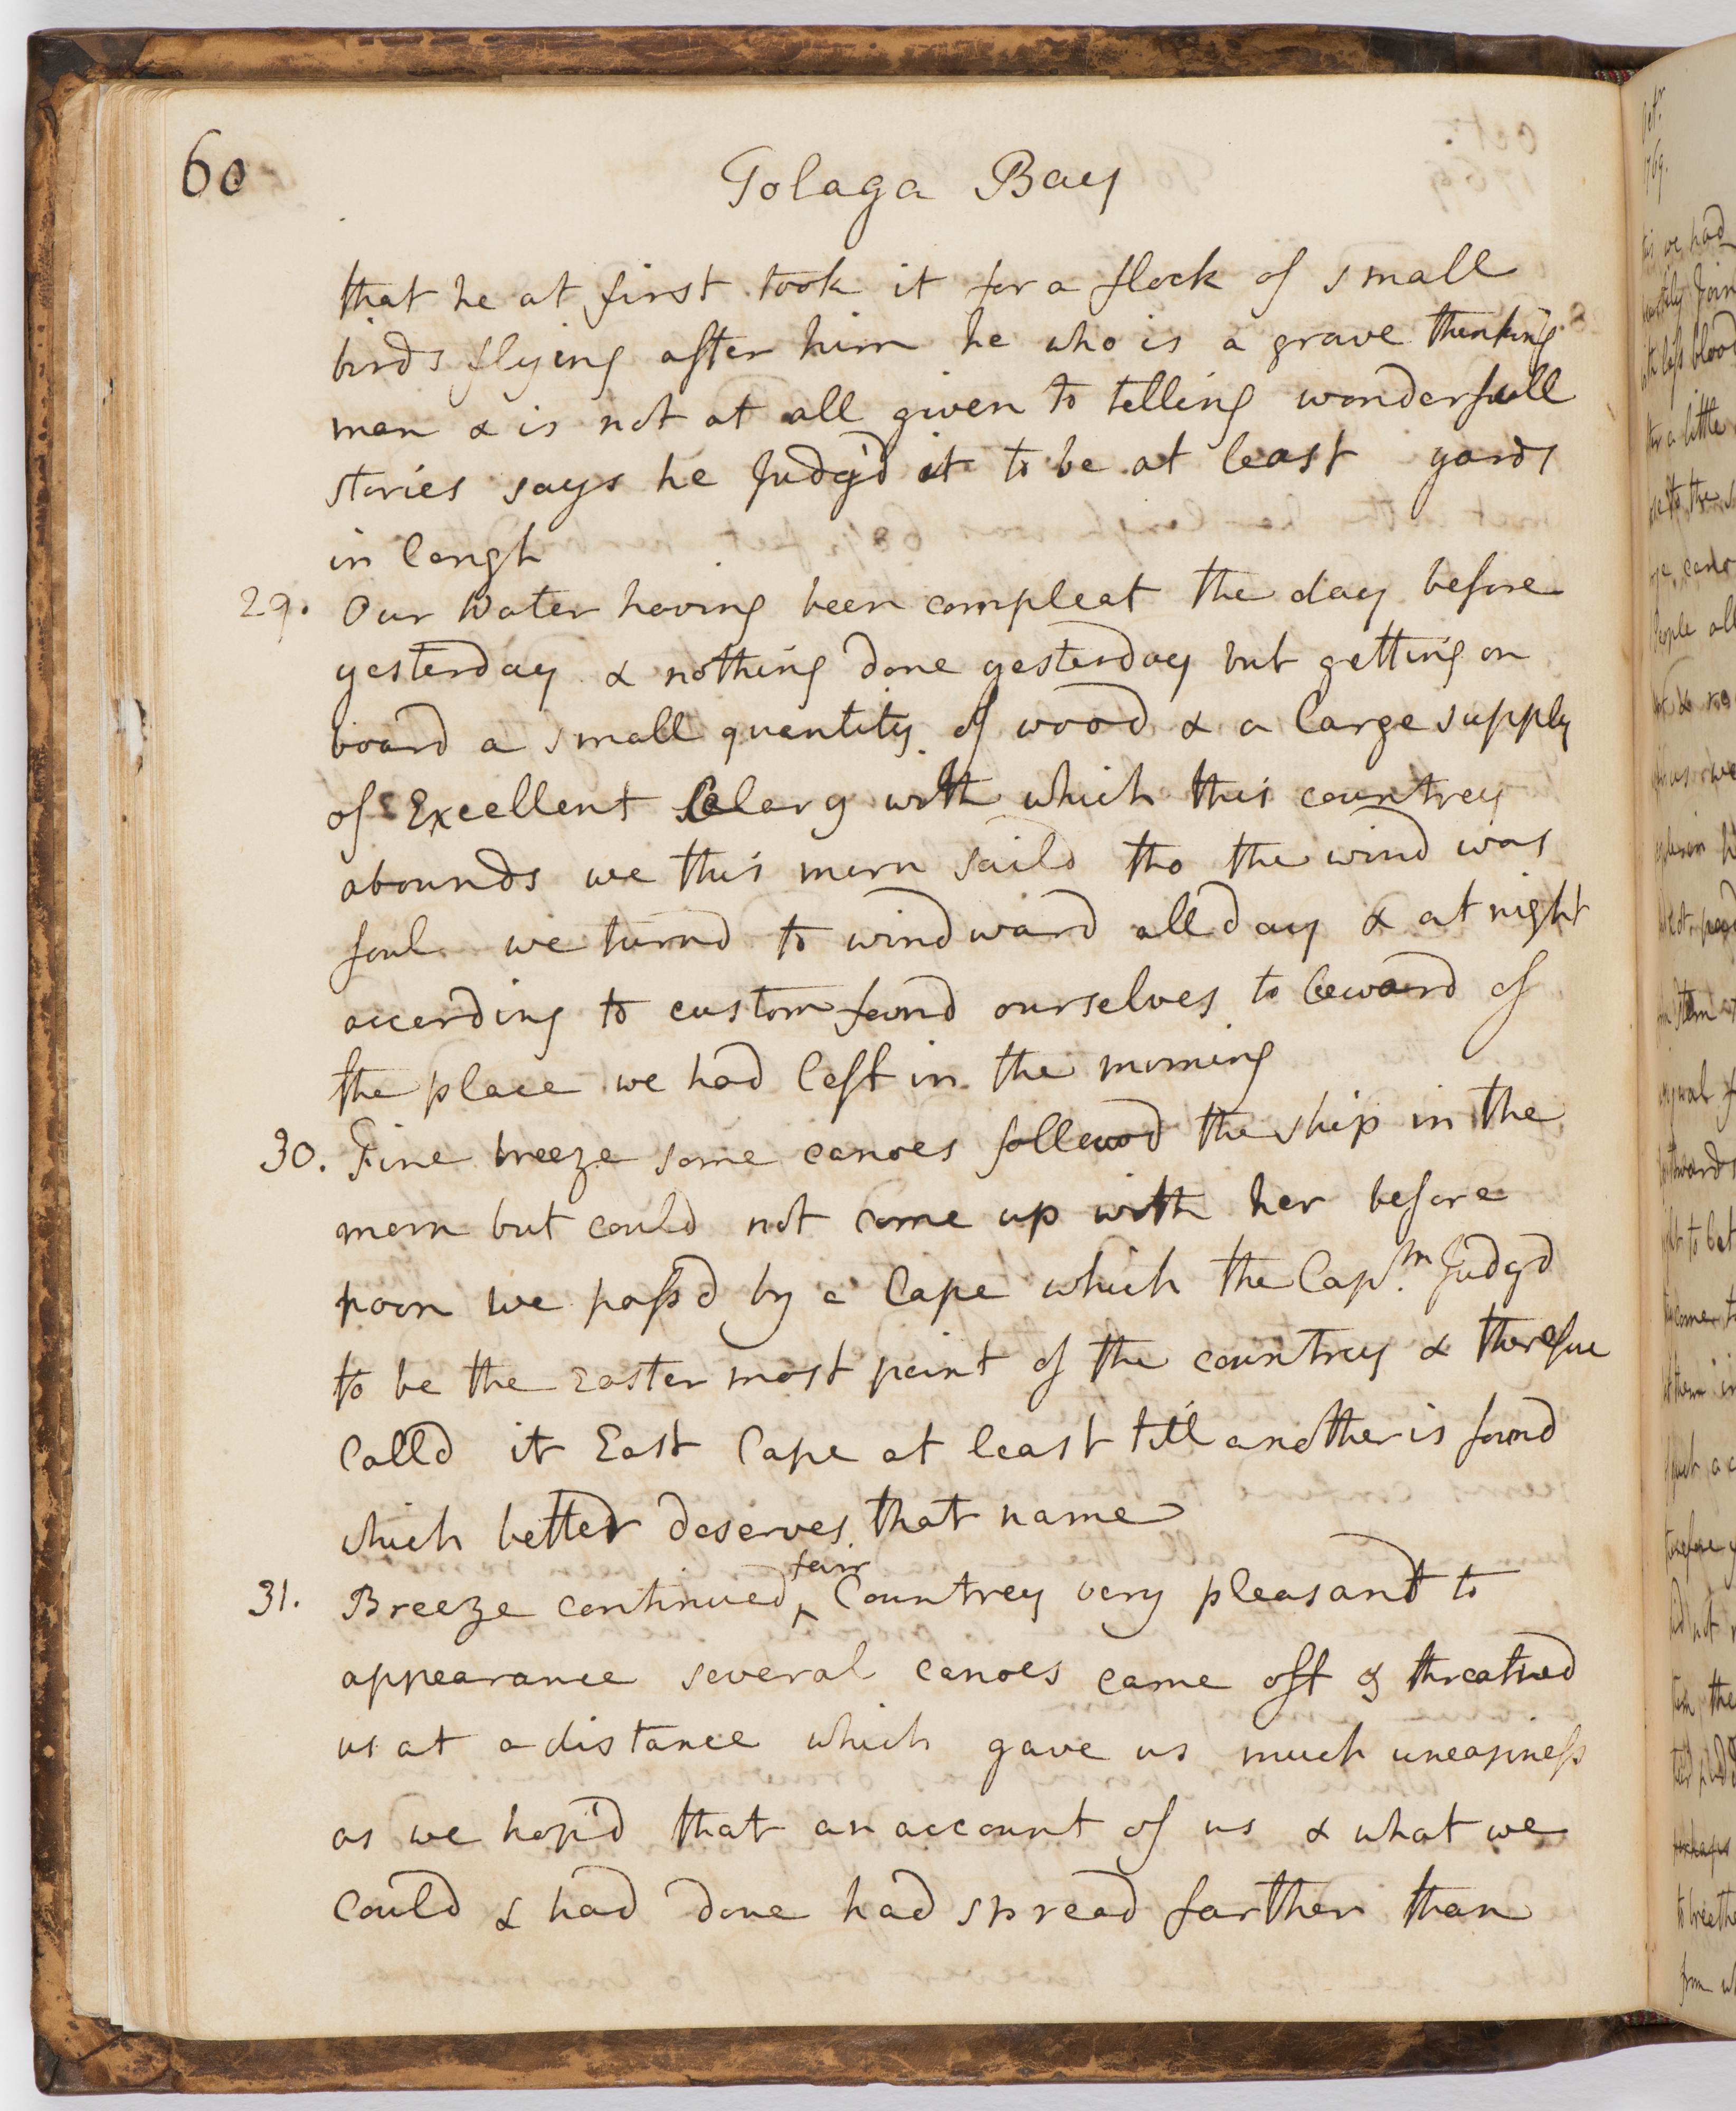 60
Tolaga Bay
that he at first took it for a flock of small
birds flying after him he who is a grave thinking
man & is not at all given to telling wonderfull
stories says he Judg'd it to be at least yards
in lengh
29. Our Water having been compleat the day before
yesterday & nothing done yesterday but getting on
board a small quantity of wood & a large supply
of Excellent Celery with which this countrey
abounds we this morn saild tho the wind was
foul we turnd to windward all day & at night
according to custom found ourselves to leward of
the place we had left in the morning
30. Fine breeze some canoes followd the ship in the
morn but could not come up with her before
noon we passd by a Cape which the Captn. Judgd
to be the Eastermost point of the countrey & therefore
Calld it East Cape at least till another is found
which better deserves that name
31. Breeze continued fair Countrey very pleasant to
appearance several canoes came off & threatned
us at a distance which gave us much uneasiness
as we hop'd that an account of us & what we
could & had done had spread farther than
Octr.
1769.
we had
blood
a little
to the
People